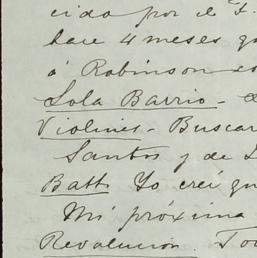 cido por el F.
hace 4 meses qu
á Robinson es
Lola Barrio - d
Violines - Buscar
Santos y de L
Batt. Yo creí qu
Mi próxima
Revolución. Tod